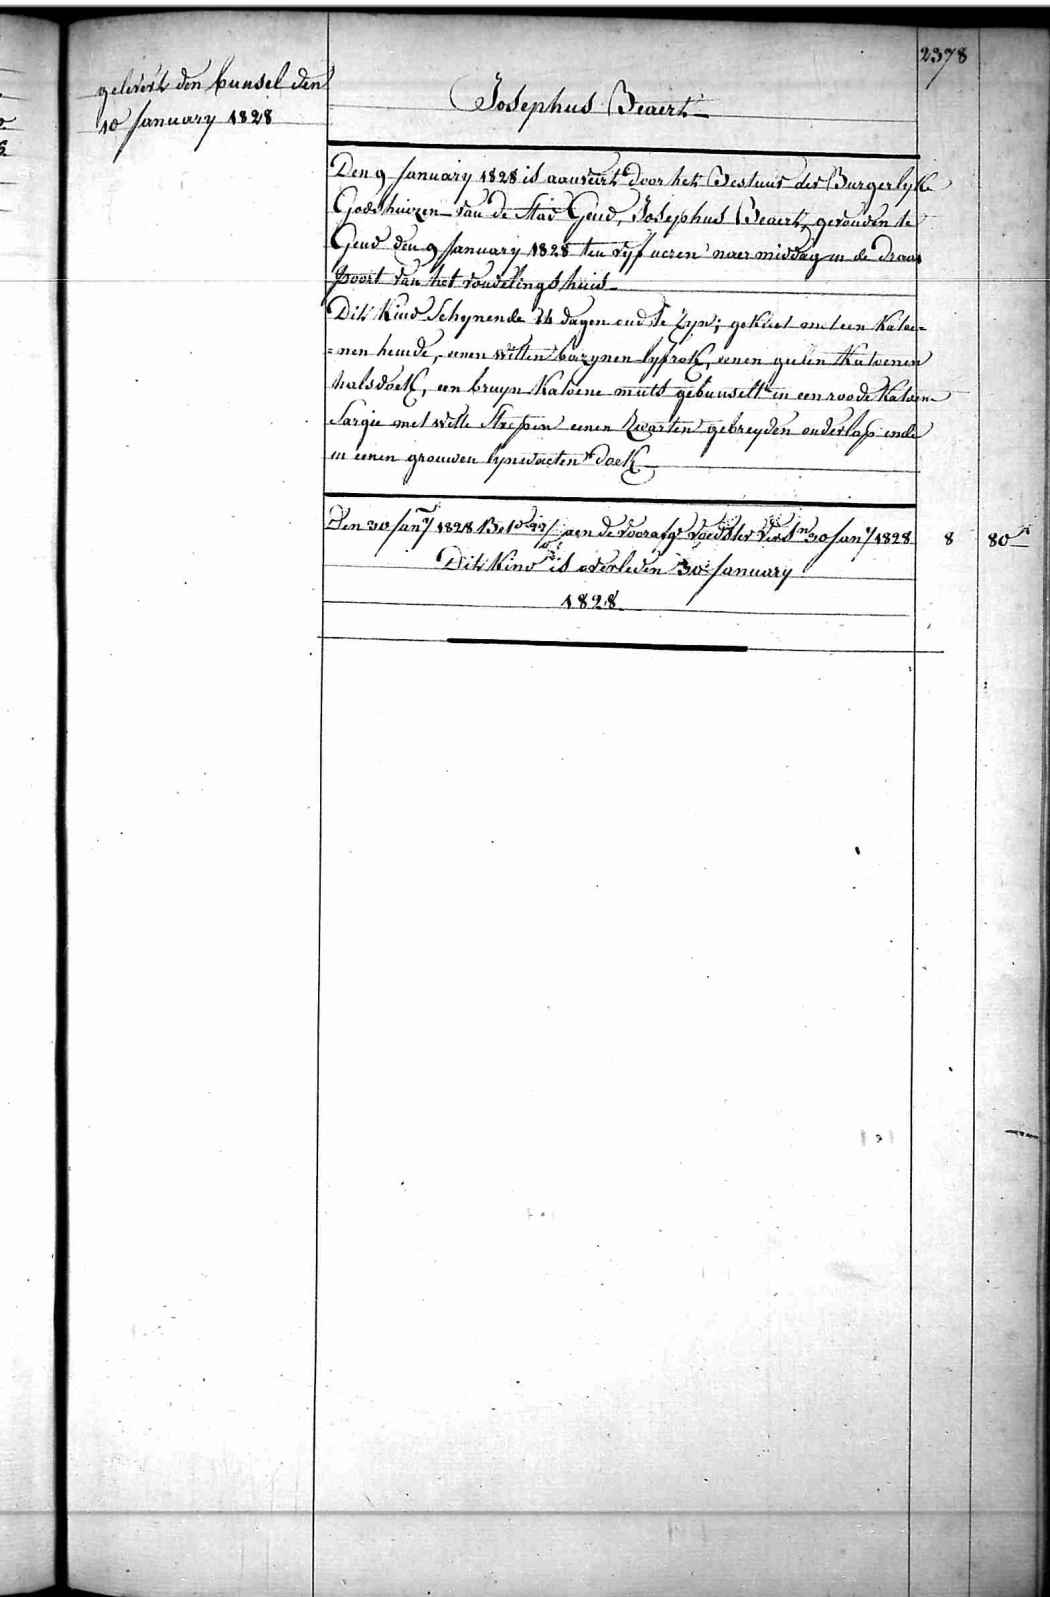 2378
gelevert den bunsel den
10 January 1828
Josephus Beaert
Den 9 January 1828 is aanveirt door het Bestuur der Burgerlyke
Godshuizen van de Stad Gend, Josephus Beaert, gevonden te
Gend den 9 January 1828 ten vyf ueren naer middag in de Draai
poort van het vondelingshuis
Dit kind Schynende 14 dagen oud te Zyn; gekleet met een katoe=
=nen hemde, eenen witten bazynen lyfrok, eenen geelen Katoenen
halsdoek, een bruyn Katoene muts gebunselt in een roode Katoen
Sargie met witte Strepen eenen Zwarten gebreyden onderlap ende
in eenen grouwen lynwaeten doek
Den 30 Jany 1828 aen de voorafge voedster 30 Jany 1828 8 80
Dit Kind is overleden 30 January
1828